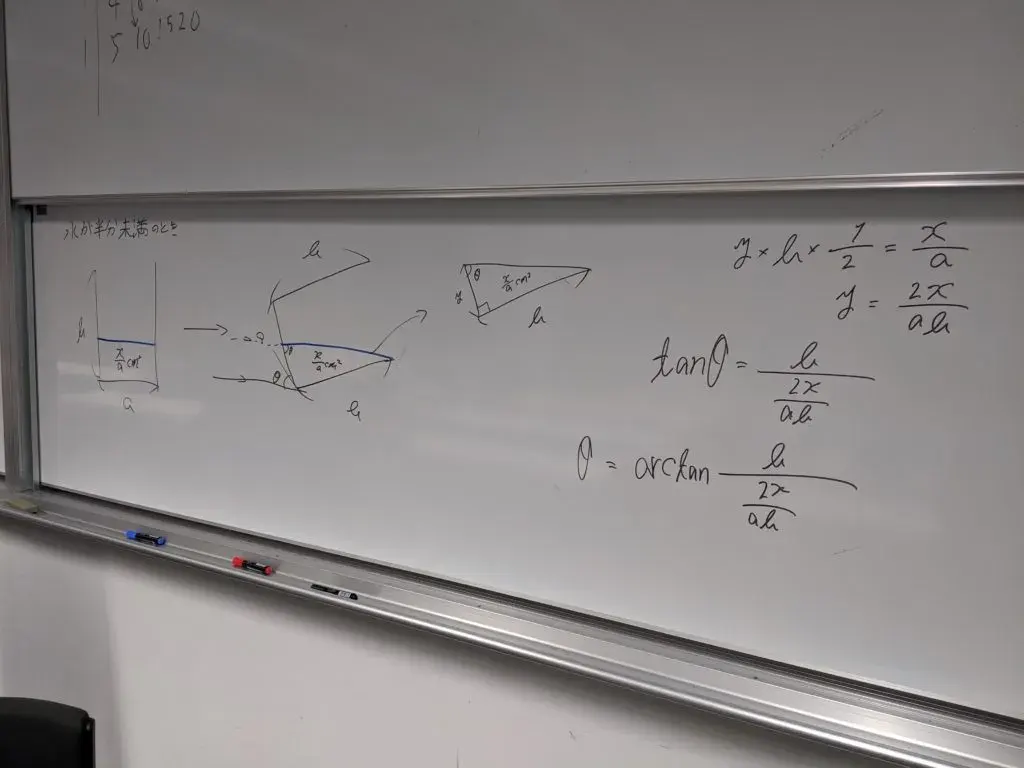 5 10 15 20
水が半分未満のとき
b
x/a cm²
a
b
θ
θ
x/a cm²
b
θ
y
x/a cm²
b
y × b × 1/2 = x/a
y = 2x/ab
tanθ = b/(2x/ab)
θ = arctan b/(2x/ab)